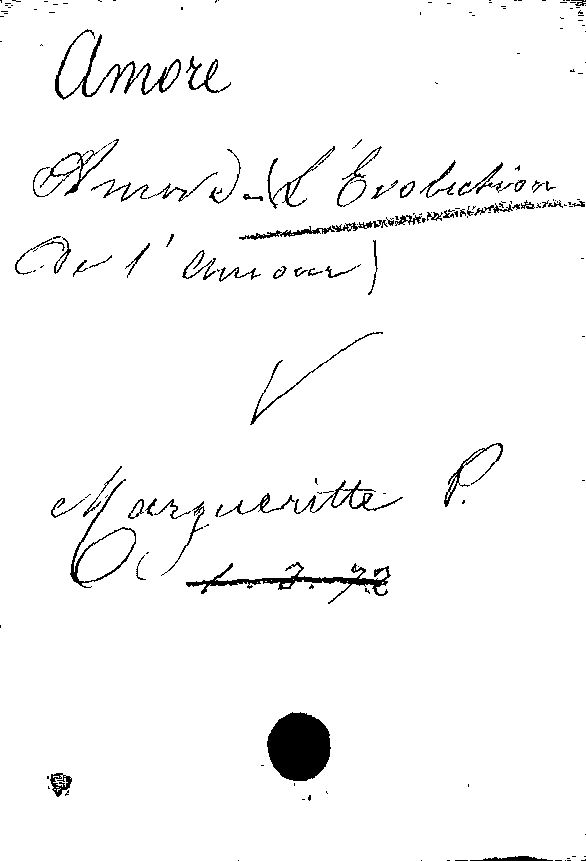 Amore
Amore - (L'Évolution
de l'amour)
Margueritte P.
1. 3. 72